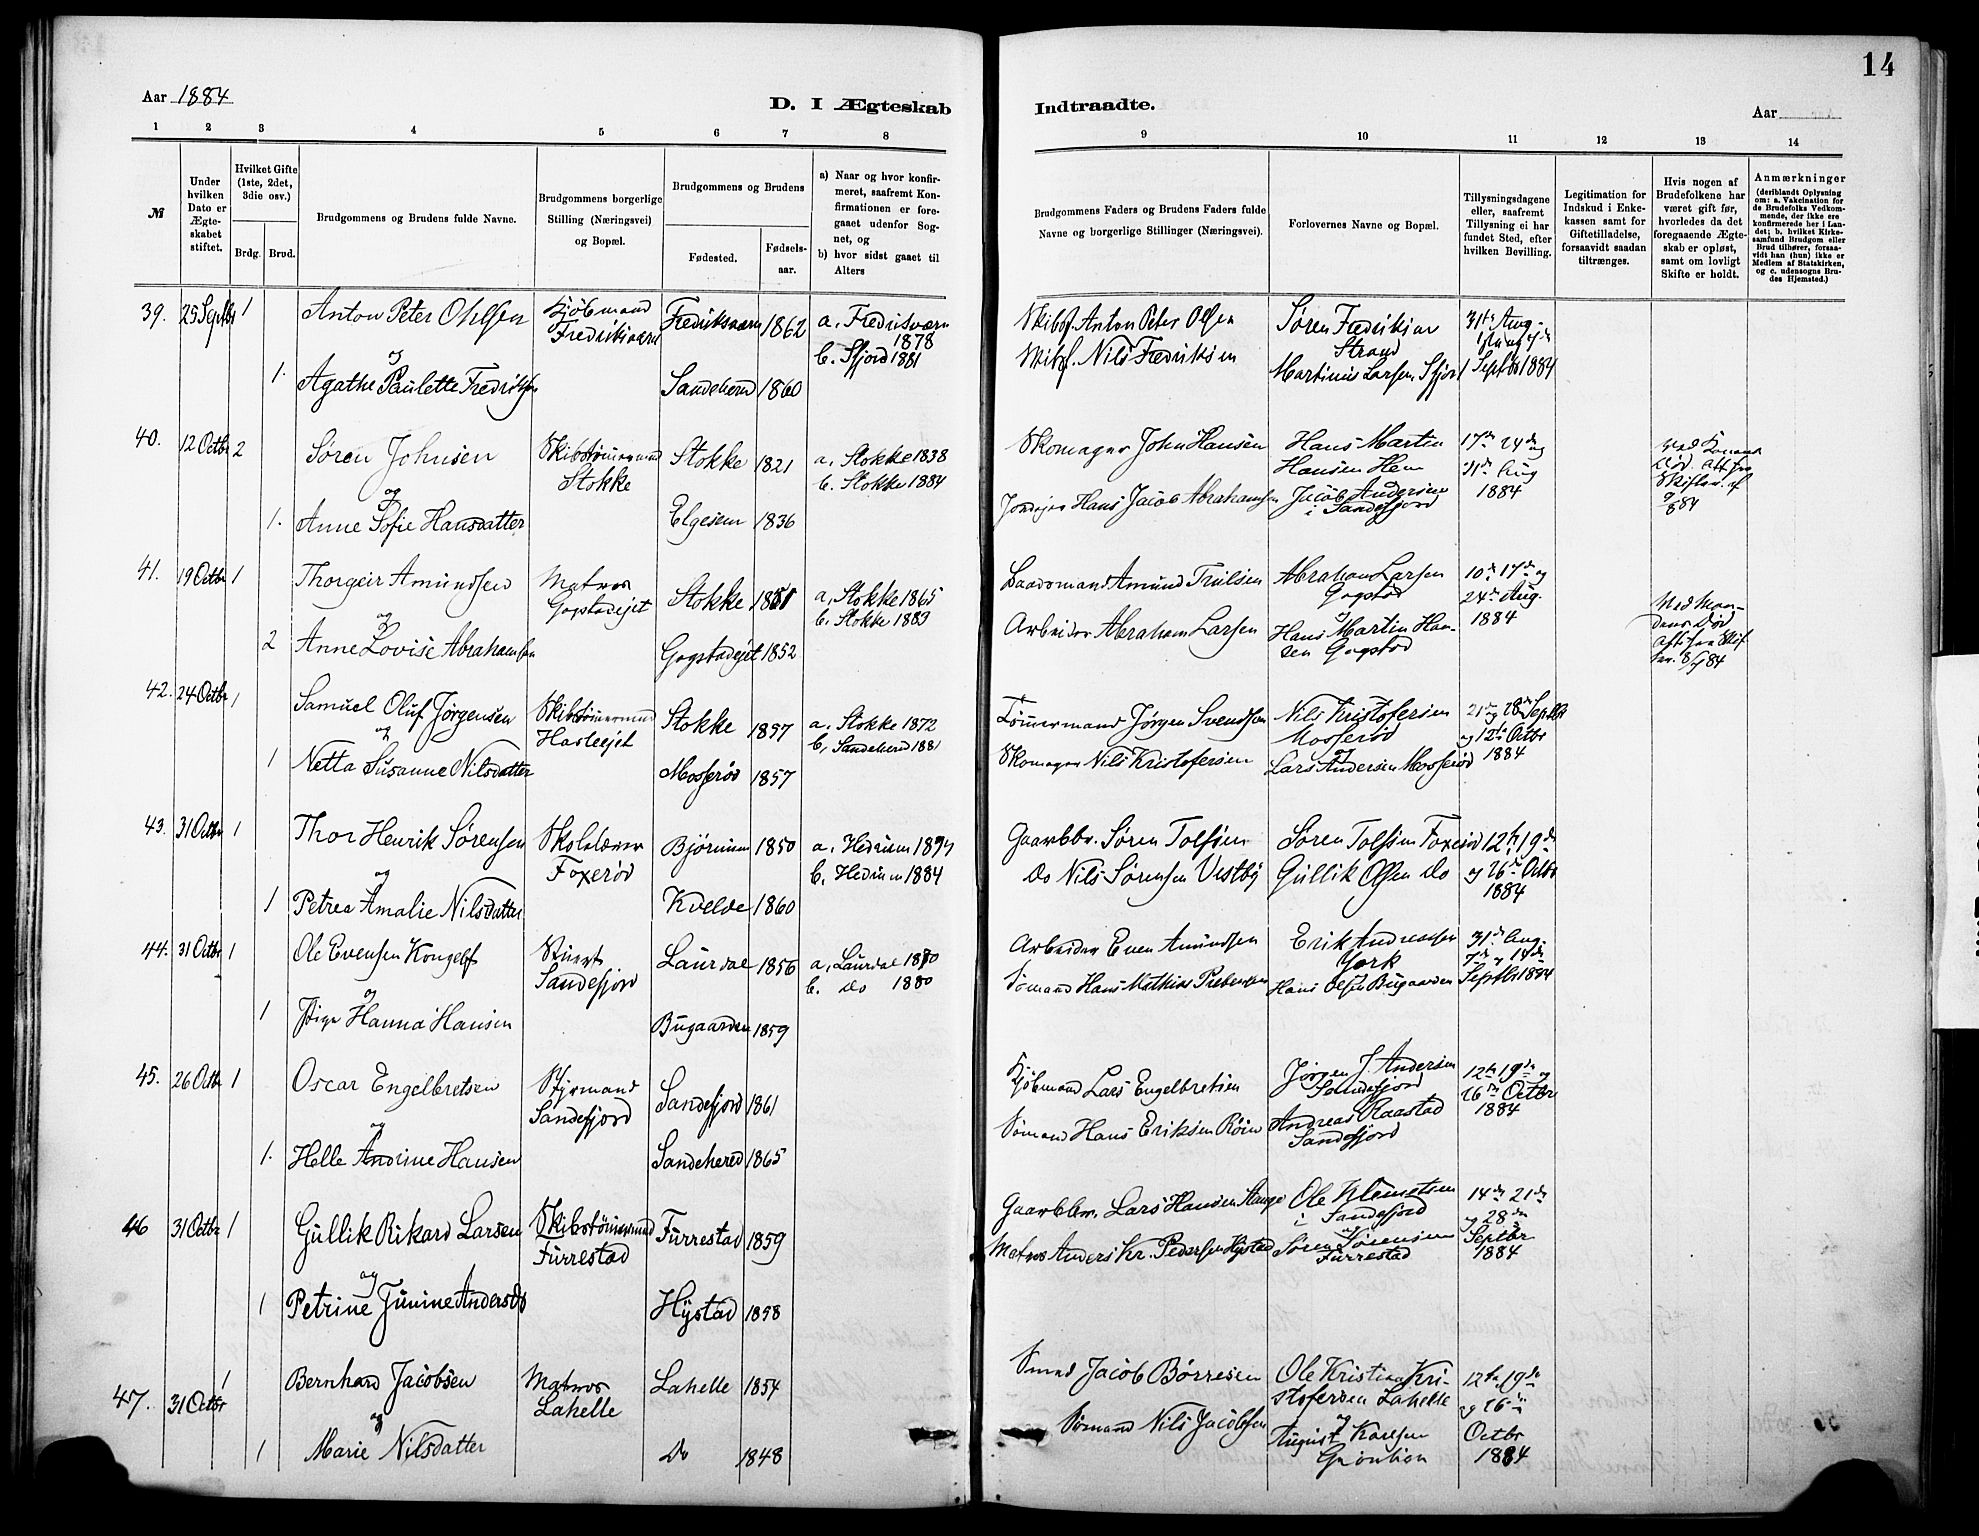 14
Aar 1884
D. I Ægteskab
Indtraadte.
Aar
1 2 3 4 5 6 7 8
9 10 11 12 13 14
№
Under hvilken Dato er Ægteskabet stiftet.
Hvilket Gifte (1ste, 2det, 3die osv.)
Brdg. Brud.
Brudgommens og Brudens fulde Navne.
Brudgommens borgerlige Stilling (Næringsvei) og Bopæl.
Brudgommens og Brudens
Fødested. Fødsels-aar.
a) Naar og hvor konfirmeret, saafremt Konfirmationen er foregaaet udenfor Sognet, og
b) hvor sidst gaaet til Alters
Brudgommens Faders og Brudens Faders fulde Navne og borgerlige Stillinger (Næringsvei).
Forlovernes Navne og Bopæl.
Tillysningsdagene eller, saafremt Tillysning ei har fundet Sted, efter hvilken Bevilling.
Legitimation for Indskud i Enkekassen samt for Giftetilladelse, forsaavidt saadan tiltrænges.
Hvis nogen af Brudefolkene har været gift før, hvorledes da det foregaaende Ægteskab er opløst, samt om lovligt Skifte er holdt.
Anmærkninger
(deriblandt Oplysning om: a. Vakcination for de Brudefolks Vedkommende, der ikke ere konfirmerede her i Landet; b. hvilket Kirkesamfund Brudgom eller Brud tilhører, forsaavidt han (hun) ikke er Medlem af Statskirken, og c. udensogns Brudes Hjemsted.)
39. 25 Septbr 1 Anton Peter Ohlsen Kjøbmand Fredriksværn Fredriksværn 1862 a. Fredrisværn 1878
b. Sfjord 1881
og
1. Agathe Paulette Fredriksen Sandeherd 1860
Skibsf. Anton Peter Olsen
Skibsf. Nils Fredriksen
Søren Fredriksen
Strand
Martinius Larsen Sfjord
31te Aug.
Septbr 1884
40. 12 Octbr 2 Søren Johnsen Skibstømmermand Stokke Stokke 1821 a. Stokke 1838
b. Stokke 1884
og
1. Anne Sofie Hansdatter Elgesem 1836
Skomager John Hansen
Jordejer Hans Jacob Abrahamsen
Hans Martin
Hansen Hem
Jacob Andersen
i Sandefjord
17de 24de og
31te Aug
1884
ved Konens
Død. Att. fra
Skifterr. af
84
41. 19 Octbr 1 Thorgeir Amundsen Matros Gogstadejet Stokke 1851 a. Stokke 1865
b. Stokke 1883
og
2 Anne Lovise Abrahamsen Gogstadejet 1852
Baadsmand Amund Trulsen
Arbeider Abraham Larsen
Abraham Larsen
Gogstad
og
Hans Martin Han-
sen Gogstad
10de 17de og
24de Aug.
1884
Ved Man-
dens Død
Att. fra Skif
84
42. 24 Octbr 1 Samuel Oluf Jørgensen Skibstømmermand Hasleejet Stokke 1857 a. Stokke 1872
b. Sandeherd 1881
og
1 Netta Susanne Nilsdatter Mosserød 1857
Tømmermand Jørgen Svendsen
Skomager Nils Kristofersen
Nils Kristofersen
Mosserød
og
Lars Andersen Mosserød
21de og 28de Septbr
og 12te Octbr
1884
43. 31 Octbr 1 Thor Henrik Sørensen Skolelærer Foxerød Bjørnum 1850 a. Hedrum
b. Hedrum 1884
og
1 Petrea Amalie Nilsdatter Kvelde 1860
Gaardbr. Søren Tolfsen
Do Nils Sørensen Vestby
Søren Tolfsen Foxerød
Gullik Olsen Do
12te 19de
og 26de Octbr
1884
44. 31 Octbr 1 Ole Evensen Kongelf Stuert Sandefjord Laurdal 1856 a. Laurdal
b. Do 1880
og
1 Pige Hanna Hansen Bugaarden 1859
Arbeider Even Amundsen
Sømand Hans Mathias Prebensen
Erik Andreassen
York
og
Hans Olsen Bugaarden
31te Aug.
7de og 14de
Septbr 1884
45. 26 Octbr 1 Oscar Engelbretsen Styrmand Sandefjord Sandefjord 1861
og
1. Helle Andrine Hansen Sandehered 1865
Kjøbmand Lars Engelbretsen
Sømand Hans Eriksen Røim
Jørgen J. Andersen
Sandefjord
Andreas Raastad
Sandefjord
12te 19de og
26de Octbr
1884
46 31 Octbr 1 Gullik Rikard Larsen Skibstømmermand Furrestad Furrestad 1859
og
1 Petrine Junine Andersdt Hystad 1858
Gaardbr. Lars Hansen Stange
Matros Anders Kr. Pedersen Hystad
Ole Klemetsen
i Sandefjord
og
Søren Sørensen
Furrestad
14de 21de
og 28de
Septbr
1884
47. 31 Octbr 1 Bernhard Jacobsen Matros Lahelle Lahelle 1854
og
1 Marie Nilsdatter Do 1848
Smed Jacob Børresen
Sømand Nils Jacobsen
Ole Kristian Kri-
stofersen Lahelle
og
August Karlsen
12te 19de
og 26de
Octbr
1884